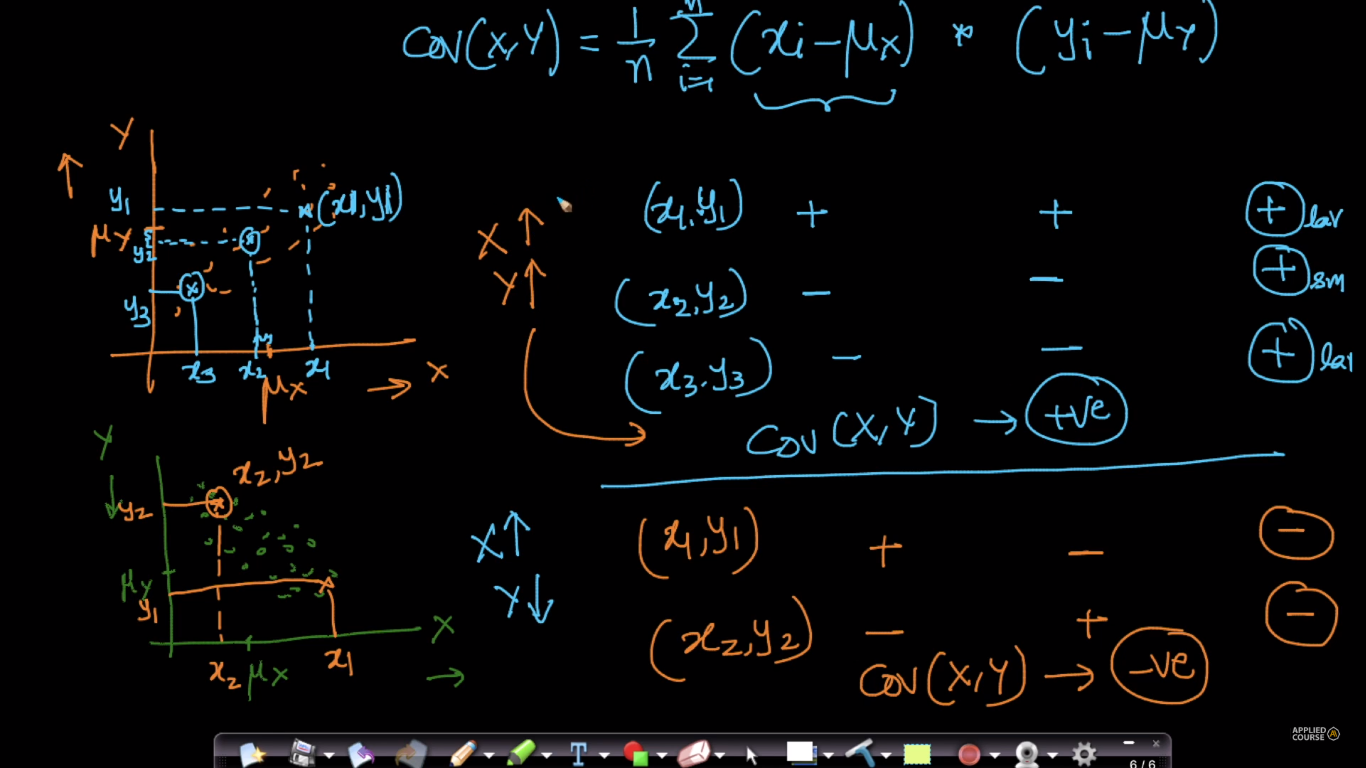 n
Cov(X,Y) = 1/n Σ (xi − μx) * (yi − μy)
i=1
Y
↑
y1
(x1,y1)
μy
y2
y3
x3 x2 x1
μx → X
X ↑
Y ↑
(x1,y1) + + + lar
(x2,y2) − − + sm
(x3,y3) − − + lar
Cov(X,Y) → +ve
Y
↓
x2,y2
y2
μy
y1
X
x2 μx x1 →
X ↑
Y ↓
(x1,y1) + − −
(x2,y2) − + −
Cov(X,Y) → −ve
APPLIED
COURSE
T
6 / 6